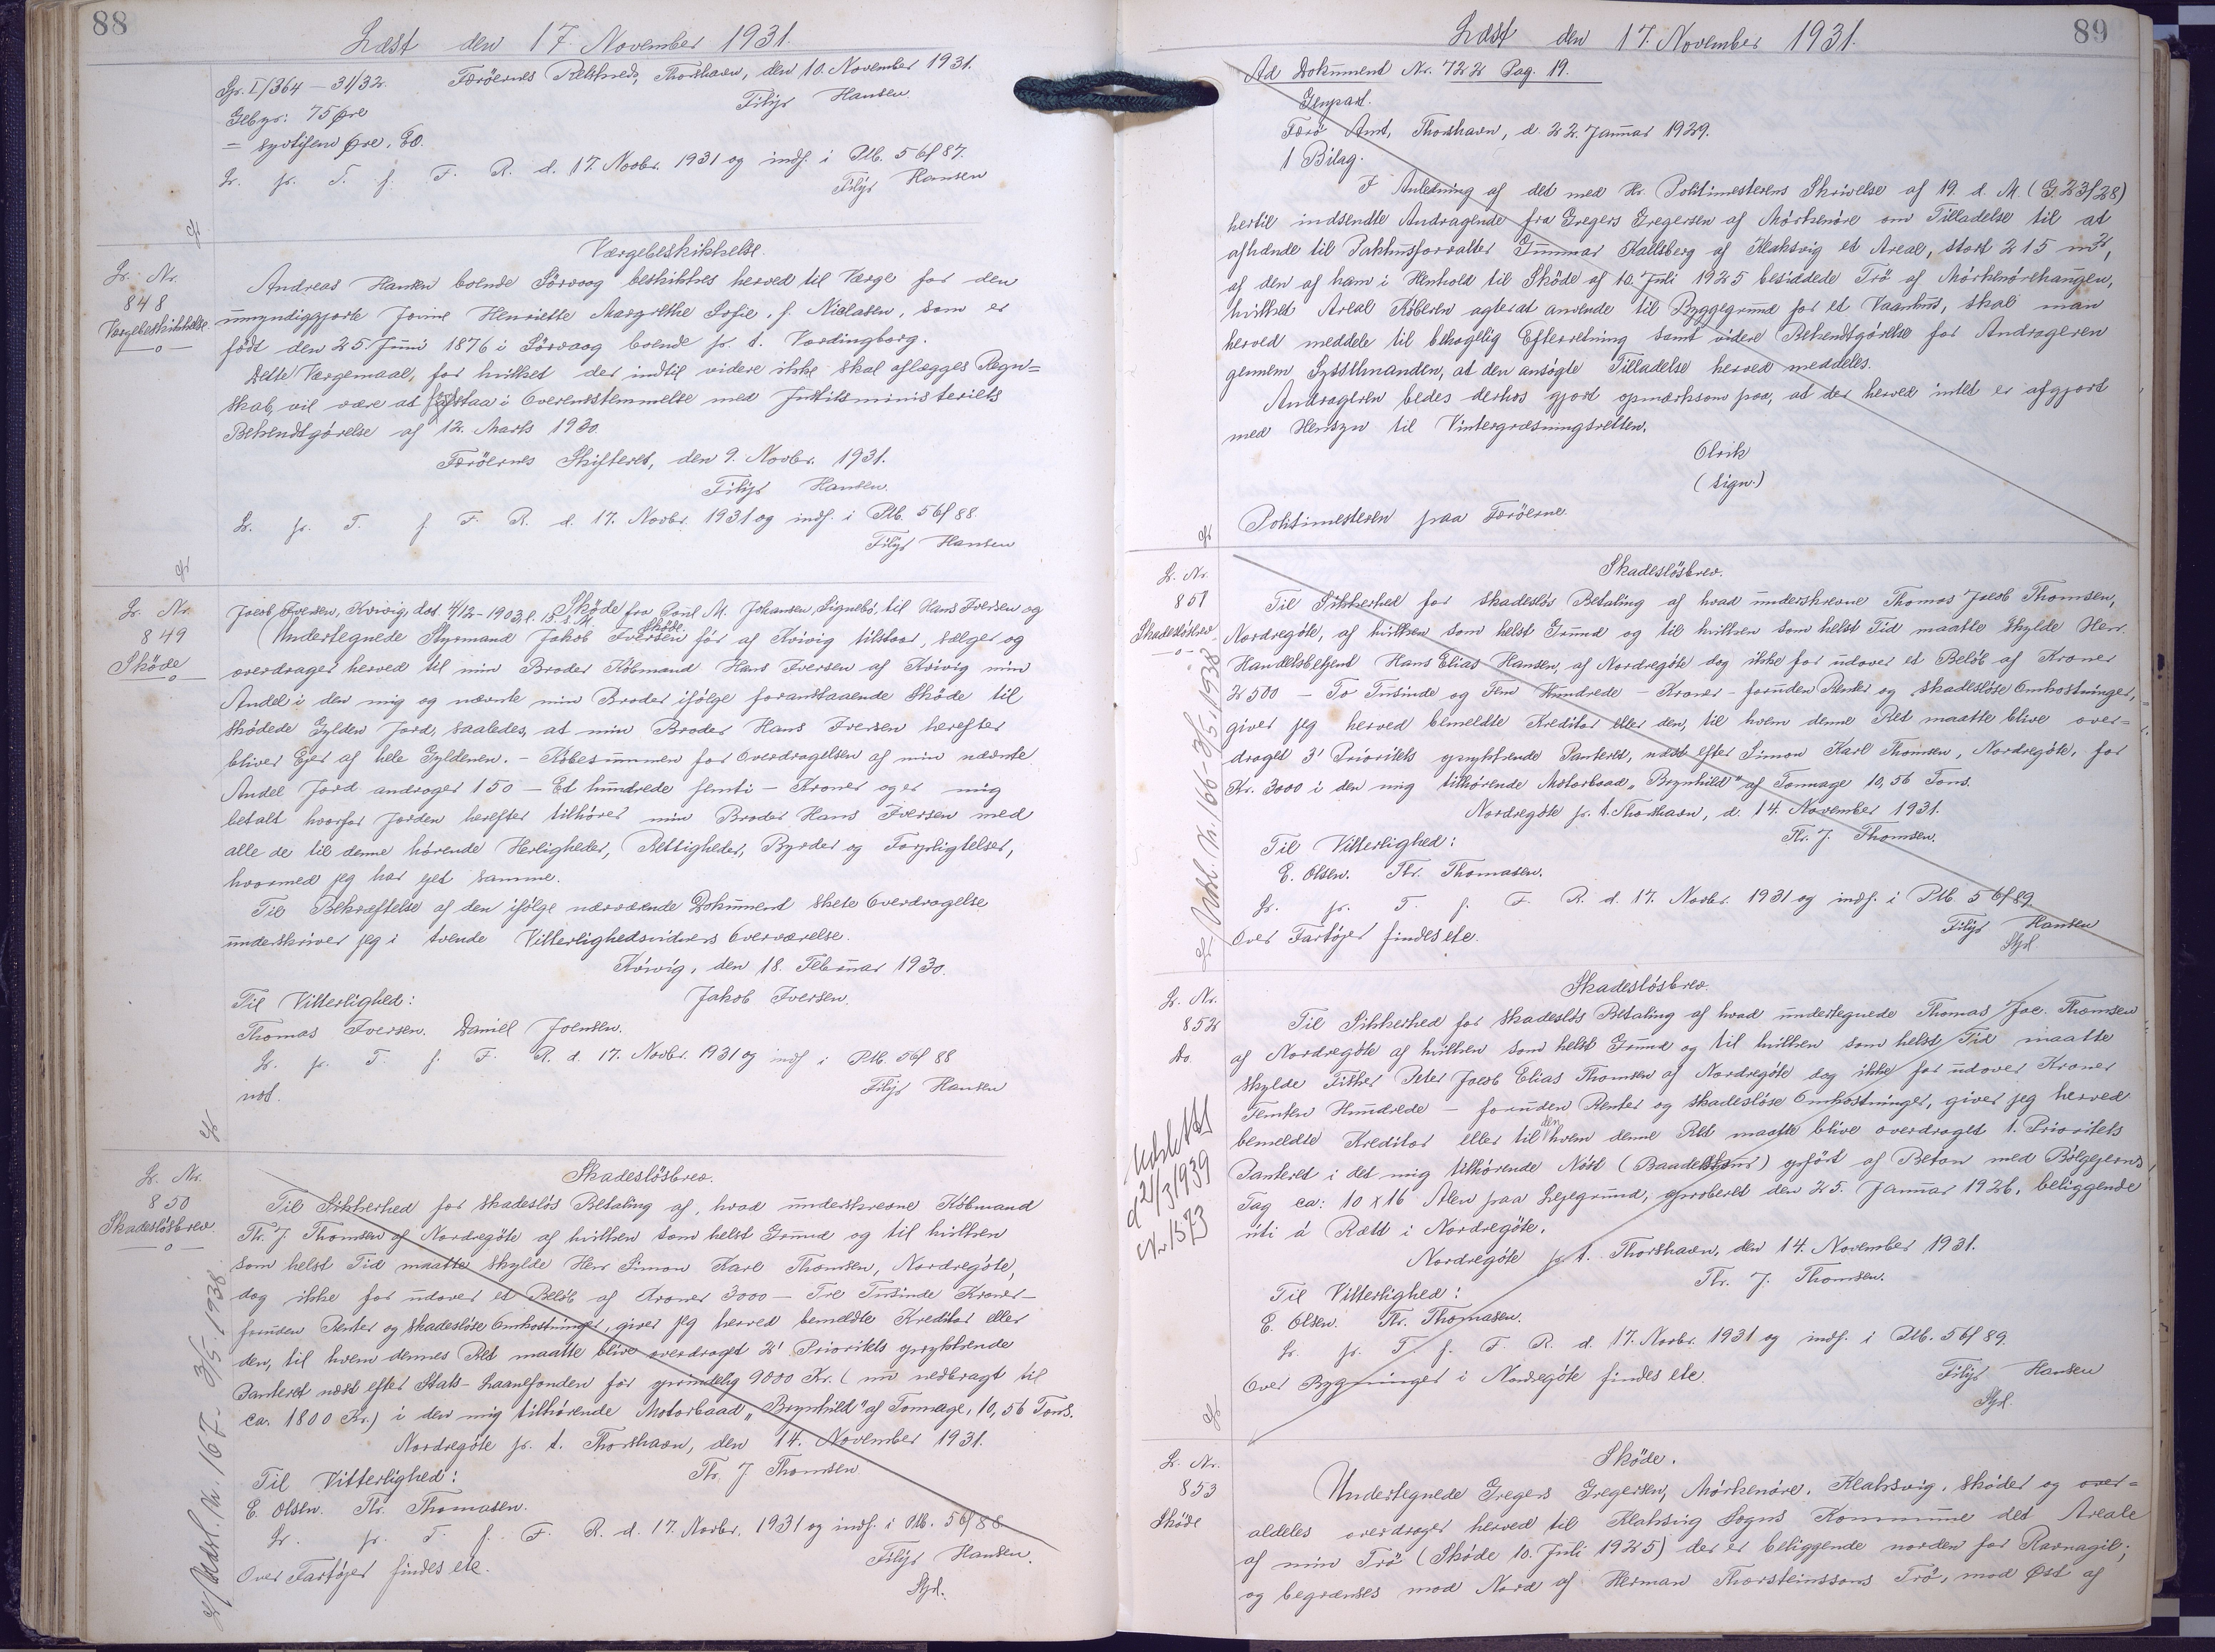 88
Læst den 17. November 1931.
Gr. I/364 - 31/32. Færöernes Retskreds, Thorshavn, den 10. November 1931.
Gebyr: 75 Øre Filip Hansen
= syvtifem Øre.
Lr. pr. T. f. F. R. d. 17. Novbr. 1931 og indf. i Ptb. 56f 87.
Filip Hansen
Lr. Nr.
848
Værgebeskikkelse
Værgebeskikkelse.
Andreas Hansen boende Sörvaag beskikkes herved til Værge for den
umyndiggjorte Henriette Margrethe Sofie, f. Nialsen, som er
född den 25. Juni 1876 i Sörvaag boende pr. t. Vordingborg.
Dette Værgemaal, for hvilket der indtil videre ikke skal aflægges Regn=
skab, vil være at forstaa i Overensstemmelse med Justitsministeriets
Bekendtgörelse af 12. Marts 1930.
Færöernes Skifteret, den 9. Novbr. 1931.
Filip Hansen.
Lr. pr. T. f. F. R. d. 17. Novbr. 1931 og indf. i Ptb. 56f 88.
Filip Hansen
Lr. Nr.
849
Sköde
Jacob Iversen, Kvivig, dat 4/12-1903, l. 15. s. M. Sköde fra Poul M. Johansen, Signebö, til Hans Iversen og
Sköde.
Undertegnede Styrmand Jakob Iversen för af Kvivig tilstaar, sælger og
overdrager herved til min Broder Köbmand Hans Iversen af Kvivig min
Andel i den mig og nævnte min Broder ifölge foranstaaende Sköde til
sködede Gylden Jord, saaledes, at min Broder Hans Iversen herefter
bliver Ejer af hele Gyldenen. - Köbesummen for Overdragelsen af min nævnte
Andel Jord andrager 150 - Et hundrede femti - Kroner og er mig
betalt hvorfor Jorden herefter tilhörer min Broder Hans Iversen med
alle de til denne hörende Herligheder, Rettigheder, Byrder og Forpligtelser,
hvormed jeg har ejet samme.
Til Bekræftelse af den ifölge nærværende Dokument skete Overdragelse
underskriver jeg i tvende Vitterlighedsvidners Overværelse.
Kvivig, den 18. Februar 1930.
Til Vitterlighed: Jakob Iversen.
Thomas Iversen. Daniel Joensen.
Lr. pr. T. f. F. R. d. 17. Novbr. 1931 og indf i Ptb. 56f 88
Filip Hansen
Lr. Nr.
850
Skadeslösbrev.
Vedr. l. Nr. 167. 3/5 1938.
Skadeslösbrev.
Til Sikkerhed for skadeslös Betaling af, hvad underskrevne Köbmand
Th. J. Thomsen af Nordregöte af hvilken som helst Grund og til hvilken
som helst Tid maatte skylde Herr Simon Karl Thomsen, Nordregöte,
dog ikke for udover et Belöb af Kroner 3000 - Tre Tusinde Kroner -
foruden Renter og skadeslöse Omkostninger, giver jeg herved bemeldte Kreditor eller
den, til hvem dennes Ret maatte blive overdraget 2' Prioritets oprykkende
Panteret næst efter Stats-Laanefonden for oprindelig 9000 Kr. (nu nedbragt til
ca. 1800 Kr.) i den mig tilhörende Motorbaad "Brynhild" af Tonnage, 10,56 Tons.
Nordregöte pr. t. Thorshavn, den 14. November 1931.
Til Vitterlighed: Th. J Thomsen
E. Olsen. Th. Thomasen.
Lr. pr. T. f. F. R. d. 17. Novbr. 1931 og indf. i Ptb. 56f 88
Over Fartöjer findes etc. Filip Hansen.
Styl.
89
Læst den 17. November 1931.
Ad Dokument Nr. 722 Pag. 19.
Genpart.
Færö Amt, Thorshavn, d. 22. Januar 1929.
1 Bilag.
I Anledning af det med Hr. Politimesterens Skrivelse af 19. d. M. (G. 23/28)
hertil indsendte Andragende fra Gregers Gregersen af Mörkenöre om Tilladelse til at
afhænde til Pakhusforvalter Gunnar Kallsberg af Klaksvig et Areal, stort 215 m²,
af den af ham i Henhold til Sköde af 10. Juli 1925 besiddede Trö af Mörkenörehaugen,
hvilket Areal Köberen agter at anvende til Byggegrund for et Vaanhus, skal man
herved meddele til behagelig Efterretning samt videre Bekendtgörelse for Andrageren
gennem Sysselmanden, at den ansögte Tilladelse herved meddeles.
Andrageren bedes derhos gjort opmærksom paa, at der herved intet er afgjort
med Hensyn til Vintergræsningsretten.
Olrik
(sign.)
Politimesteren paa Færöerne.
Lr. Nr.
851
Skadeslösbrev
Vedr. l. Nr. 166 - 3/5 1938
Skadeslösbrev.
Til Sikkerhed for skadeslös Betaling af hvad underskrevne Thomas Jacob Thomsen,
Nordregöte, af hvilken som helst Grund og til hvilken som helst Tid maatte skylde Herr.
Handelsbetjent Hans Elias Hansen, af Nordregöte dog ikke for udover et Belöb af Kroner
2500 - To Tusinde og Fem Hundrede - Kroner - foruden Renter og skadeslöse Omkostninger,
giver jeg herved bemeldte Kreditor eller den, til hvem denne Ret maatte blive over=
draget 3' Prioritets oprykkende Panteret, næst efter Simon Karl Thomsen, Nordregöte, for
Kr. 3000 i den mig tilhörende Motorbaad "Brynhild" af Tonnage 10,56 Tons.
Nordregöte pr. t. Thorshavn, d. 14. November 1931.
Til Vitterlighed: Th. J. Thomsen.
E. Olsen. Th. Thomasen.
Lr. pr. T. f. F. R. d. 17. Novbr. 1931 og indf. i Ptb. 56f 89.
Over Fartöjer findes etc. Filip Hansen
Styl.
Lr. Nr.
852
Do.
Udslettet
d 21/3 1939
Nr 1573
Skadeslösbrev.
Til Sikkerhed for skadeslös Betaling af hvad undertegnede Thomas Jac. Thomsen
af Nordregöte af hvilken som helst Grund og til hvilken som helst Tid maatte
skylde Fisker Peter Jacob Elias Thomsen af Nordregöte dog ikke for udover Kroner
Femten Hundrede - foruden Renter og skadeslöse Omkostninger, giver jeg herved
bemeldte Kreditor eller til den hvem denne Ret maatte blive overdraget 1. Prioritets
Panteret i det mig tilhörende Nöst (Baadehus) opfört af Beton med Bölgejerns
Tag ca: 10 x 16 Alen paa Lejegrund, erhvervet den 25. Januar 1926, beliggende
úti á Rætt i Nordregöte.
Nordregöte pr t. Thorshavn, den 14. November 1931.
Til Vitterlighed: Th. J. Thomsen.
E. Olsen. Th. Thomasen.
Lr. pr. T. f. F. R. d. 17. Novbr. 1931 og indf. i Ptb. 56f 89.
Over Bygninger i Nordregöte findes etc. Filip Hansen
Styl.
Lr. Nr.
853
Sköde
Sköde.
Undertegnede Gregers Gregersen, Mörkenöre, Klaksvig, sköder og over=
aldeles overdrager herved til Klaksvig Sogns Kommune det Areale
af min Trö (Sköde 10. Juli 1925) der er beliggende norden for Ravnagil;
og begrænses mod Nord af Herman Thorsteinssons Trö, mod Öst af